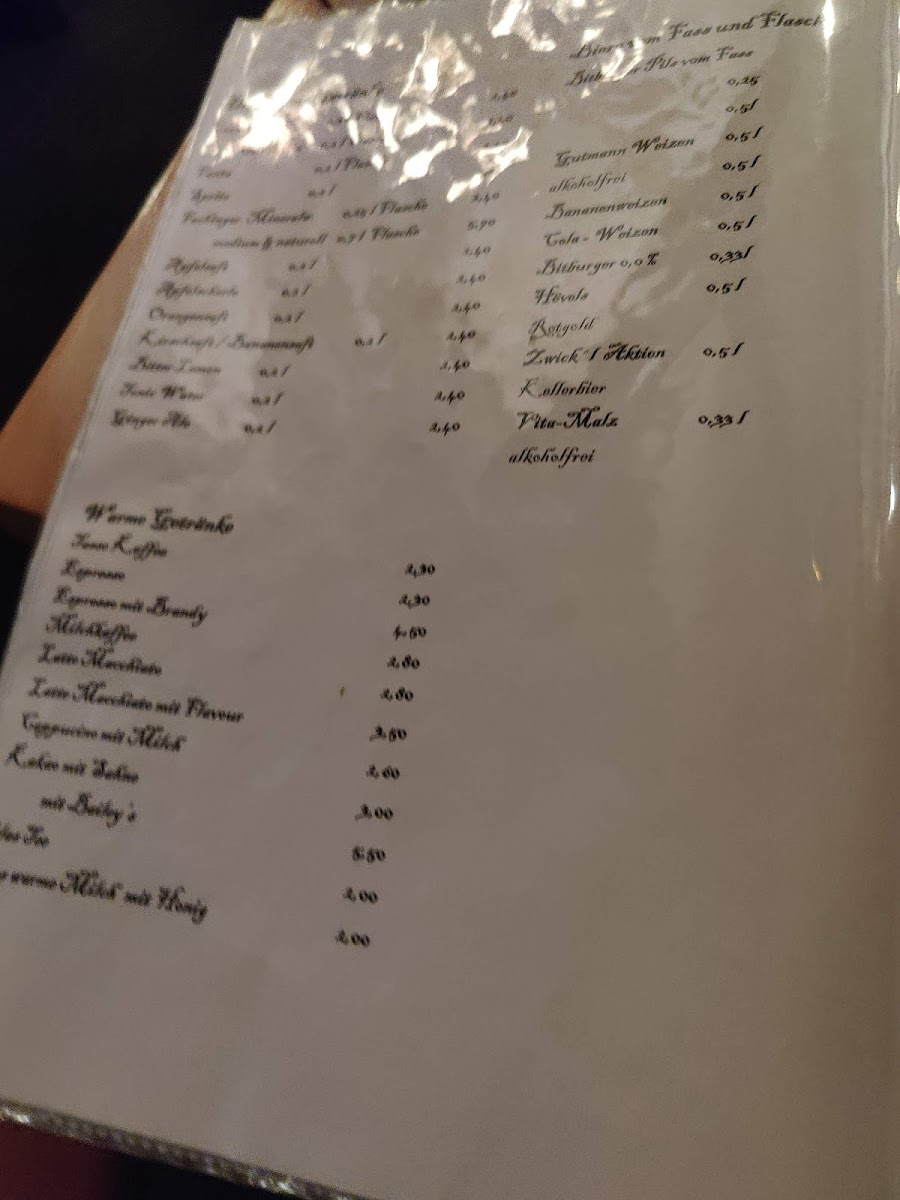 2,40
Fanta 0,2 l
Sprite 0,2 l 2,40
Fachinger Mineralw. 0,25 l Flasche 5,90
medium & naturell 0,7 l Flasche 2,40
Apfelsaft 0,2 l 2,40
Apfelschorle 0,2 l 2,40
Orangensaft 0,2 l
Kirschsaft / Bananensaft 0,2 l 2,40
Bitter Lemon 0,2 l 2,40
Tonic Water 0,2 l 2,40
Ginger Ale 0,2 l 2,40
Warme Getränke
Tasse Kaffee 2,30
Espresso 2,30
Espresso mit Brandy 4,50
Milchkaffee 2,80
Latte Macchiato 2,80
Latte Macchiato mit Flavour 3,50
Cappucino mit Milch 2,60
Kakao mit Sahne 3,00
mit Bailey's 5,50
Tee 2,00
warme Milch mit Honig 2,00
Fass und
Pils vom Fass 0,25
0,5 l
Gutmann Weizen 0,5 l
alkoholfrei 0,5 l
Bananenweizen 0,5 l
Cola - Weizen 0,5 l
Bitburger 0,0 % 0,33 l
Hövels 0,5 l
Rotgold
Zwick'l Aktien 0,5 l
Kellerbier
Vita-Malz 0,33 l
alkoholfrei